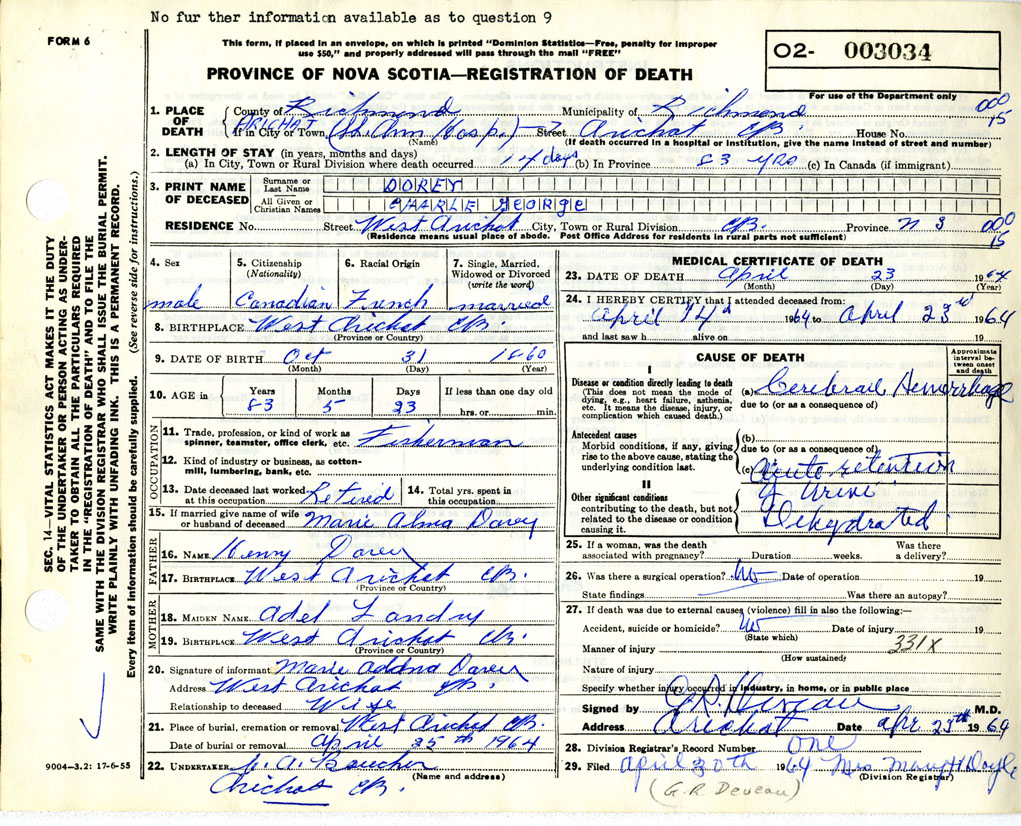 No fur ther information available as to question 9
FORM 6
This form, if placed in an envelope, on which is printed "Dominion Statistics—Free, penalty for improper
use $50," and properly addressed will pass through the mail "FREE"
PROVINCE OF NOVA SCOTIA—REGISTRATION OF DEATH
O2- 003034
For use of the Department only
SEC. 14—VITAL STATISTICS ACT MAKES IT THE DUTY
OF THE UNDERTAKER OR PERSON ACTING AS UNDER-
TAKER TO OBTAIN ALL THE PARTICULARS REQUIRED
IN THE "REGISTRATION OF DEATH" AND TO FILE THE
SAME WITH THE DIVISION REGISTRAR WHO SHALL ISSUE THE BURIAL PERMIT.
WRITE PLAINLY WITH UNFADING INK. THIS IS A PERMANENT RECORD.
Every item of information should be carefully supplied. (See reverse side for instructions.)
1. PLACE OF DEATH County of Richmond Municipality of Richmond 000 15
ARICHAT If in City or Town (St. Ann Hosp.) Street Arichat CB. House No.
(Name) (If death occurred in a hospital or institution, give the name instead of street and number)
2. LENGTH OF STAY (in years, months and days)
(a) In City, Town or Rural Division where death occurred 14 days (b) In Province 83 yrs (c) In Canada (if immigrant)
3. PRINT NAME OF DECEASED Surname or Last Name DOREY
All Given or Christian Names CHARLIE GEORGE
RESIDENCE No. Street West Arichat City, Town or Rural Division CB. Province N S 000 15
(Residence means usual place of abode. Post Office Address for residents in rural parts not sufficient)
4. Sex male
5. Citizenship (Nationality) Canadian
6. Racial Origin French
7. Single, Married, Widowed or Divorced (write the word) married
8. BIRTHPLACE West Arichat CB.
(Province or Country)
9. DATE OF BIRTH Oct 31 1860
(Month) (Day) (Year)
10. AGE in Years 83 Months 5 Days 23 If less than one day old hrs. or min.
OCCUPATION
11. Trade, profession, or kind of work as spinner, teamster, office clerk, etc. Fisherman
12. Kind of industry or business, as cotton-mill, lumbering, bank, etc.
13. Date deceased last worked at this occupation Retired 14. Total yrs. spent in this occupation
15. If married give name of wife or husband of deceased Marie Alma Dorey
FATHER
16. NAME Henny Dorey
17. BIRTHPLACE West Arichat CB.
(Province or Country)
MOTHER
18. MAIDEN NAME Adel Landry
19. BIRTHPLACE West Arichat CB.
(Province or Country)
20. Signature of informant Marie Dorey
Address West Arichat CB.
Relationship to deceased Wife
21. Place of burial, cremation or removal West Arichat CB.
Date of burial or removal April 25th 1964
9004—3.2: 17-6-55
22. UNDERTAKER A Boucher
(Name and address)
Arichat CB.
MEDICAL CERTIFICATE OF DEATH
23. DATE OF DEATH April 23 1964
(Month) (Day) (Year)
24. I HEREBY CERTIFY that I attended deceased from:
April 14th 1964 to April 23rd 1964
and last saw h alive on 19
CAUSE OF DEATH
Approximate interval between onset and death
I
Disease or condition directly leading to death
(This does not mean the mode of dying, e.g., heart failure, asthenia, etc. It means the disease, injury, or complication which caused death.)
(a) Cerebral Hemorrhage
due to (or as a consequence of)
Antecedent causes
Morbid conditions, if any, giving rise to the above cause, stating the underlying condition last.
(b)
due to (or as a consequence of)
(c) Acute retention
of Urine
II
Other significant conditions contributing to the death, but not related to the disease or condition causing it.
Dehydrated
25. If a woman, was the death associated with pregnancy? Duration weeks. Was there a delivery?
26. Was there a surgical operation? No Date of operation 19
State findings Was there an autopsy?
27. If death was due to external causes (violence) fill in also the following:—
Accident, suicide or homicide? No Date of injury 19
(State which)
Manner of injury 331X
(How sustained)
Nature of injury
Specify whether injury occurred in industry, in home, or in public place
Signed by G R Deveau M.D.
Address Arichat Date Apr 23th 1964
28. Division Registrar's Record Number One
29. Filed April 30th 1964 Mrs Mary H Doyle
(Division Registrar)
(G.R Deveau)